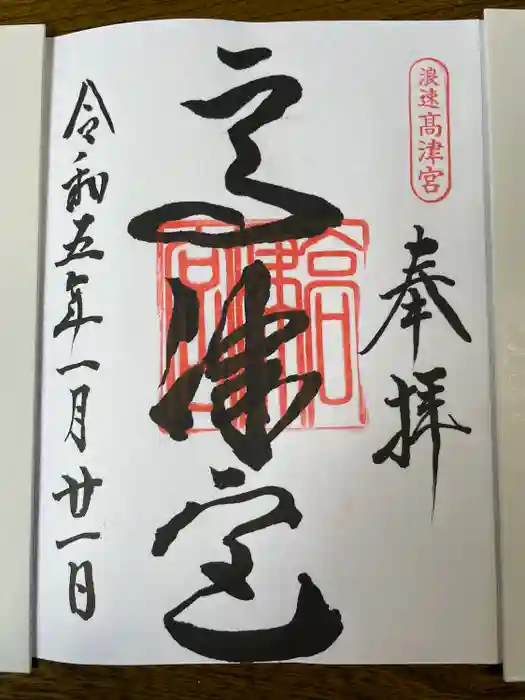 浪速高津宮
奉拝
高津宮
高津宮
令和五年一月廿一日